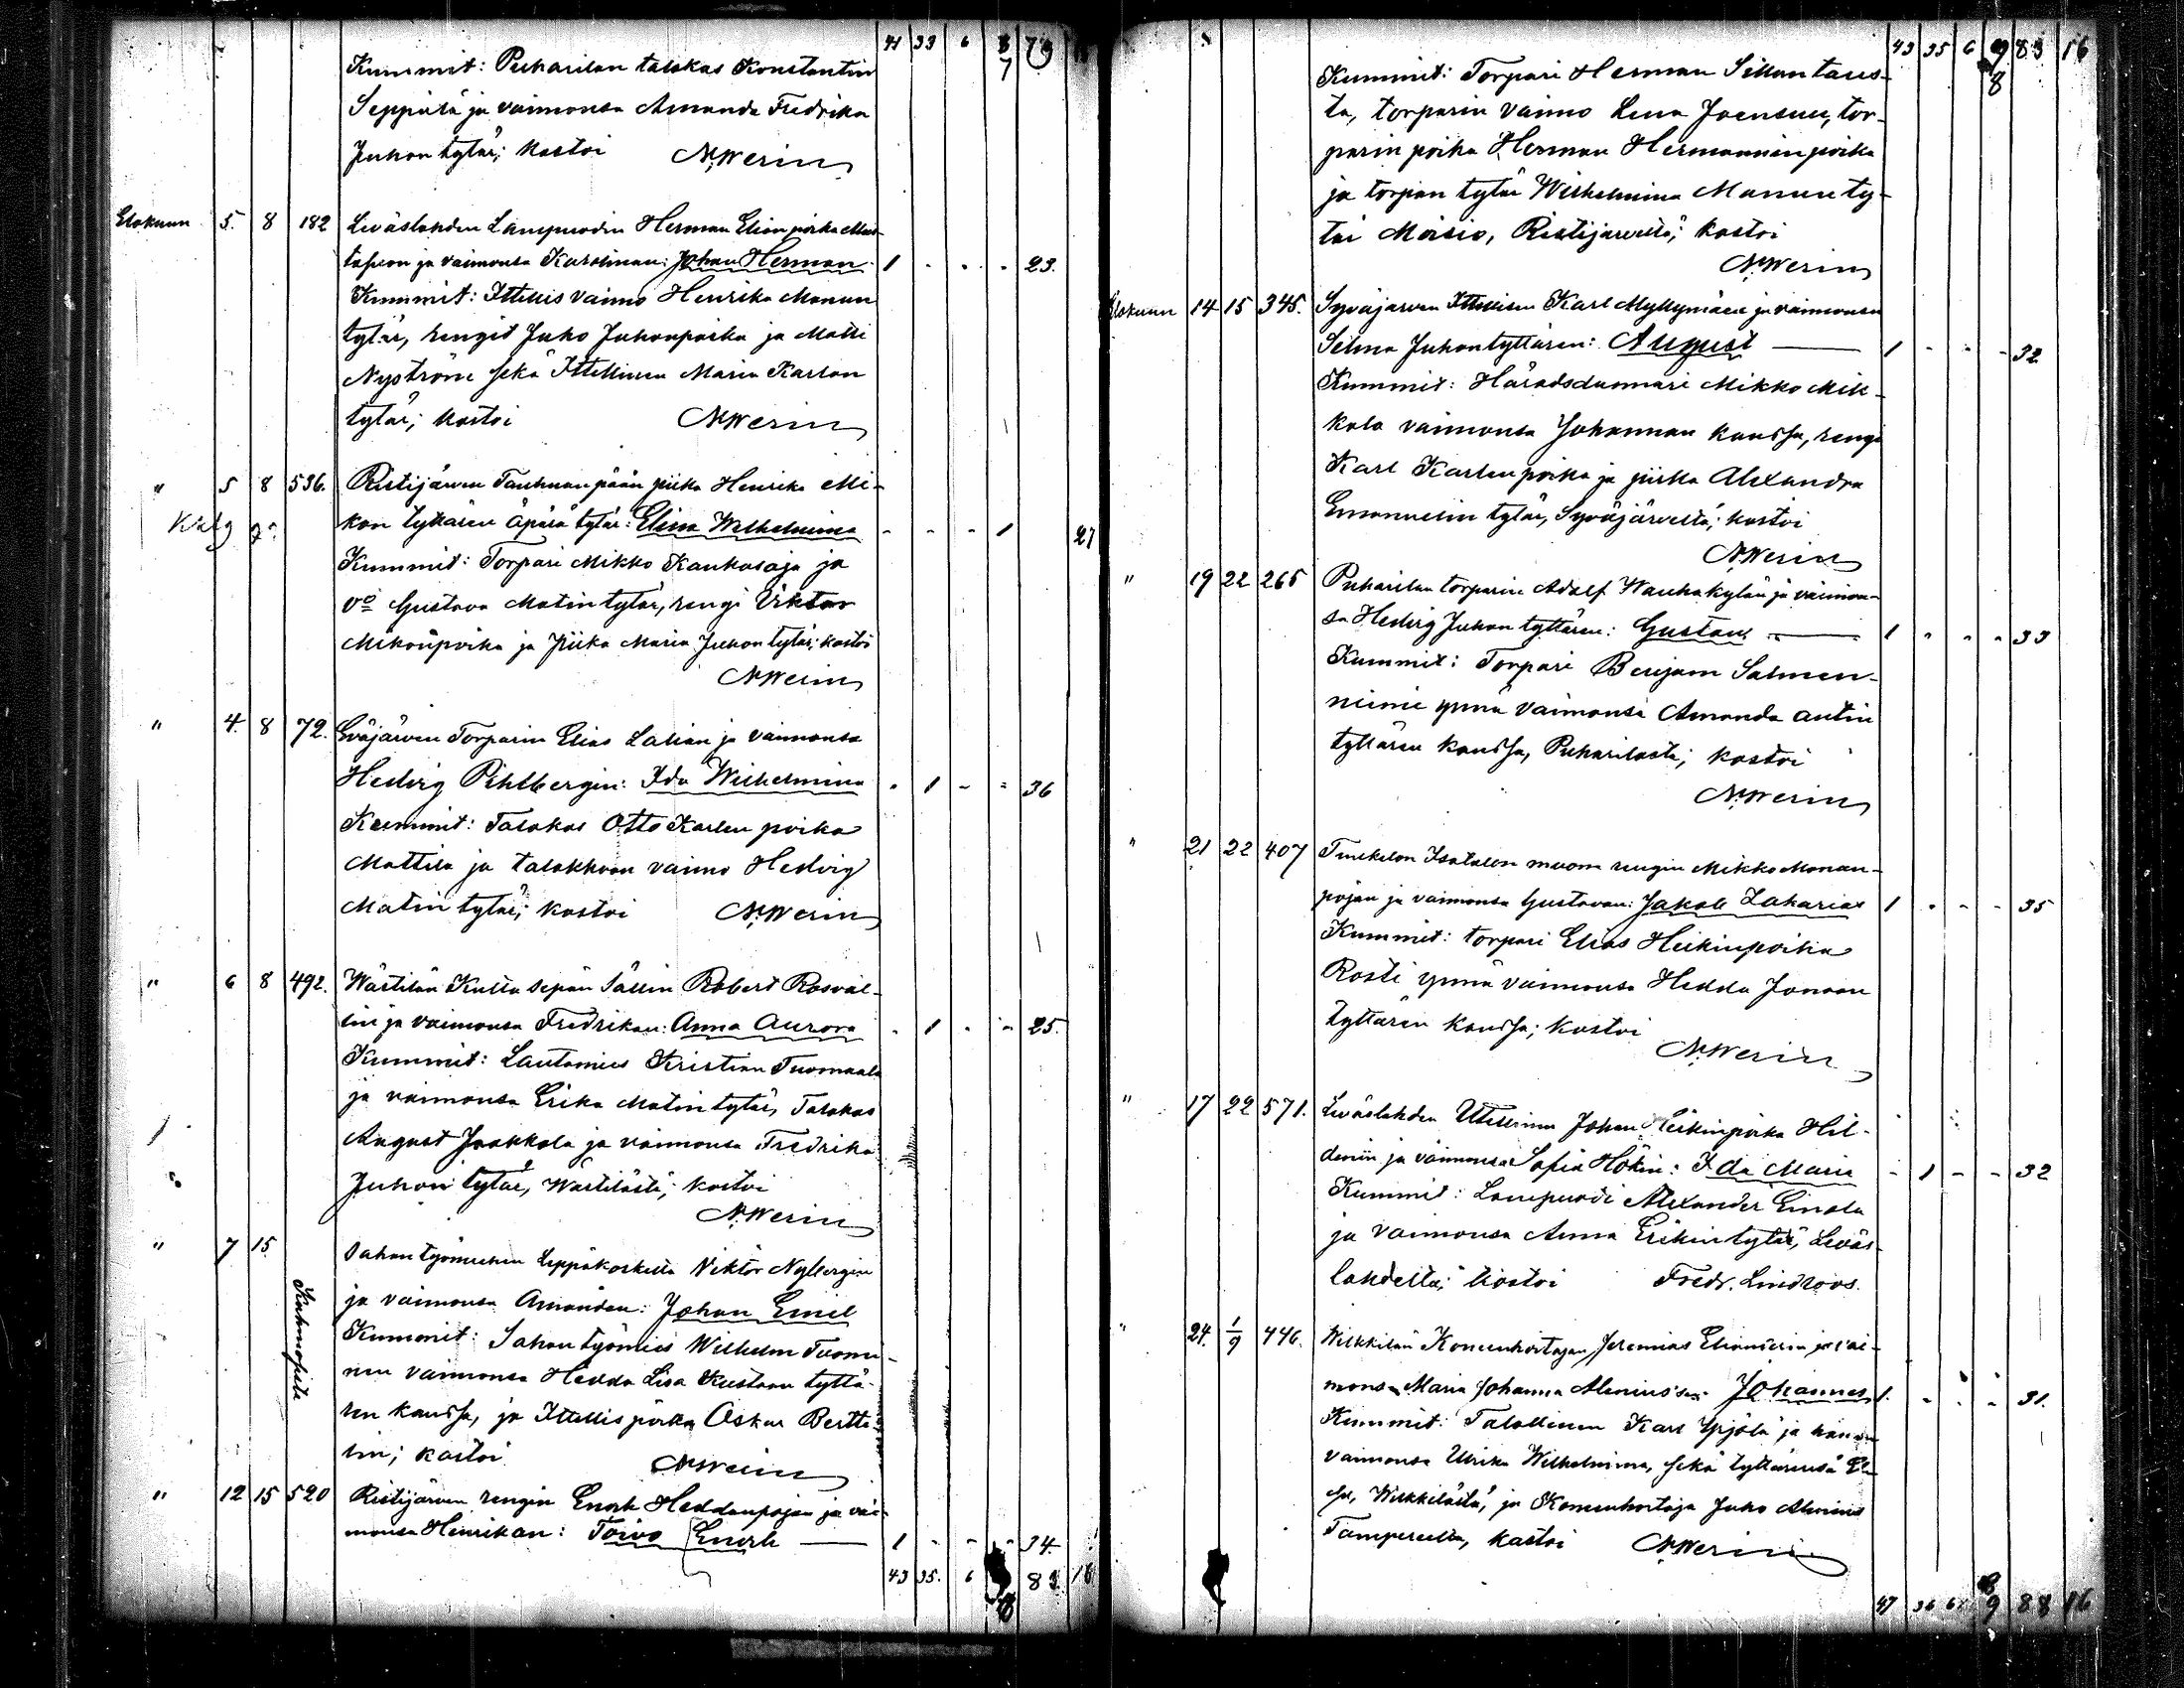 41 33 6 8 79
7
Kummit: Puharilan talokas Konstantin
Seppälä ja vaimonsa Amanda Fredrika
Juhon tytär; kastoi N. Werin
Elokuun 5. 8 182 Leväslahden Lampuodin Herman Elian poika Mus-
tapeon ja vaimonsa Karolinan: Johan Herman 1 - - - 23.
Kummit: Ittellis vaimo Henrika Manun
tytär, rengit Juho Juhonpoika ja Matti
Nyström sekä Ittellinen Maria Karlon
tytär; kastoi N. Werin
" 5 8 536. Ristijärven Tanhuanpään piika Henrika Mi-
kon tyttären äpärä tytär: Elina Wilhelmina - - - 1 27
Kummit: Torpari Mikko Kankasoja ja
vo Gustava Matin tytär, rengi Viktor
Mikonpoika ja Piika Maria Juhon tytär; kastoi
N. Werin
" 4. 8 72. Eväjärven Torparin Elias Lahian ja vaimonsa
Hedvig Pihlbergin: Ida Wilhelmina - 1 - - 36
Kummit: Talokas Otto Karlen poika
Mattila ja talokkaan vaimo Hedvig
Matin tytär; kastoi N. Werin
" 6 8 492. Wästilän Kulta sepän Sällin Robert Rosval-
lin ja vaimonsa Fredrikan: Anna Aurora - 1 - - 25.
Kummit: Lautamies Kristian Tuomaala
ja vaimonsa Erika Matin tytär, Talokas
August Jaakkola ja vaimonsa Fredrika
Juhon tytär, Wästilästä; kastoi
N. Werin
" 7 15. Sahan työmiehen Leppäkoskella Viktor Nybergin
ja vaimonsa Amandan: Johan Emil
Kummit: Sahan työmies Wilhelm Tuomi-
nen vaimonsa Hedda Lisa Kustaan tyttä-
ren kanssa, ja Ittellis poika Oskar Bertte-
lin; kastoi N. Werin
" 12 15 520 Ristijärven rengin Enok Heddanpojan ja vai-
monsa Henrikan: Toivo Enok 1 - - - 34.
43 35. 6 8 83 16
43 35 6 9 83 16
8
Kummit: Torpari Herman Sillantaus-
ta, torparin vaimo Lena Joensuu, tor-
parin poika Herman Hermanninpoika
ja torpan tytär Wilhelmina Manun ty-
tär Moisio, Ristijärveltä; kastoi
N. Werin
Elokuun 14 15 345. Syväjärven Ittellisen Karl Myllymäen ja vaimonsa
Selma Juhontyttären: August 1 - - - 32
Kummit: Häradsdomari Mikko Mik-
kola vaimonsa Johannan kanssa, rengi
Karl Karlenpoika ja piika Alexandra
Emanuelin tytär, Syväjärveltä; kastoi
N. Werin
" 19 22 265 Puharilan torparin Adolf Wanhakylän ja vaimon-
sa Hedvig Juhon tyttären: Gustav 1 - - - 33
Kummit: Torpari Benjam Salmen-
niemi ynnä vaimonsa Amanda Antin
tyttären kanssa, Puharilasta; kastoi
N. Werin
" 21 22 407 Isotalon muona rengin Mikko Manan-
pojan ja vaimonsa Gustavan: Jakob Zakarias 1 - - - 35
Kummit: torpari Elias Heikinpoika
Rosti ynnä vaimonsa Hedda Jonaan
tyttären kanssa; kastoi
N. Werin
" 17 22 571. Leväslahden Ittellisen Johan Heikinpoika Hil-
denin ja vaimonsa Sofia Hökin: Ida Maria - 1 - - 32
Kummit: Lampuodi Alexander Einola
ja vaimonsa Anna Erikin tytär, Leväs-
lahdelta; kastoi Fredr. Lindroos.
" 24. 1/9 446. Wilkkilän Koneenhoitajan Jeremias Elianderin ja vai-
monsa Maria Johanna Alenius'sen: Johannes 1. - - - 31.
Kummit: Talollinen Karl Ypjölä ja hänen
vaimonsa Ulrika Wilhelmina, sekä tyttärensä El-
sa, Wilkkilästä, ja Koneenhoitaja Juho Alenius
Tampereelta, kastoi N. Werin
47 36 6 9 88 16